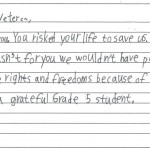 Veteran,
You risked your life to save us.
sn't for you we wouldn't have p
rights and freedoms because of
a grateful Grade 5 student.